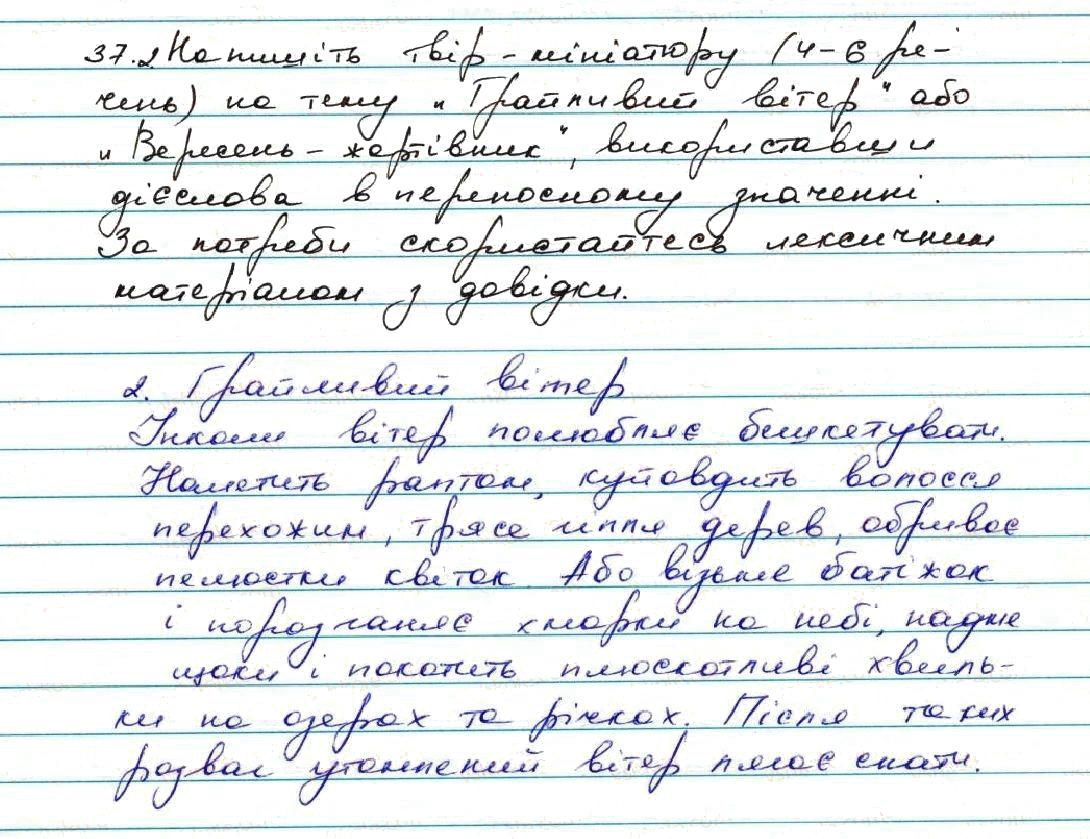 37.2 Напишіть твір-мініатюру (4-6 ре-
чень) на тему "Грайливий вітер" або
"Вересень - жартівник", використавши
дієслова в переносному значенні.
За потреби скористайтесь лексичним
матеріалом з довідки.
2. Грайливий вітер
Інколи вітер полюбляє бешкетувати.
Налетить раптом, куйовдить волосся
перехожим, трясе гілля дерев, обриває
пелюстки квіток. Або візьме батіжок
і порозганяє хмарки на небі, надме
щоки і покотить плюскотливі хвиль-
ки на озерах та річках. Після таких
розваг утомлений вітер лягає спати.